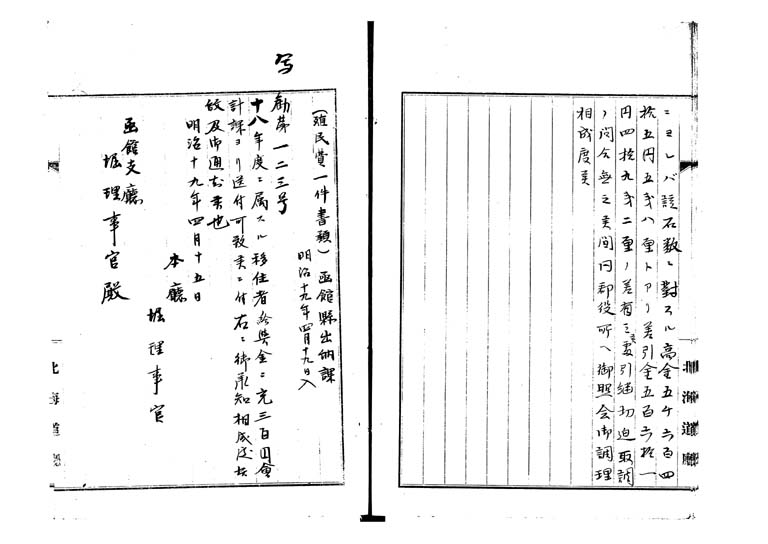 ニヨレバ該石数ニ対スル高金五千六百四
拾五円五銭八厘トアリ差引金五百六拾一
円四拾九銭二厘ノ差有之処引継切迫取調
ノ間合無之候間同郡役所ヘ御照会御調理
相成度候
北海道庁
写
(殖民費一件書類) 函館県出納課
明治十九年四月十九日入
勧第一二三号
十八年度ニ属スル移住者給与金ニ充三百円会
計課ヨリ送付可致候ニ付右ニ御承知相成度
故及御通知候也
明治十九年四月十五日
本廳
堀理事官
函館支廳
堀理事官殿
北海道廳